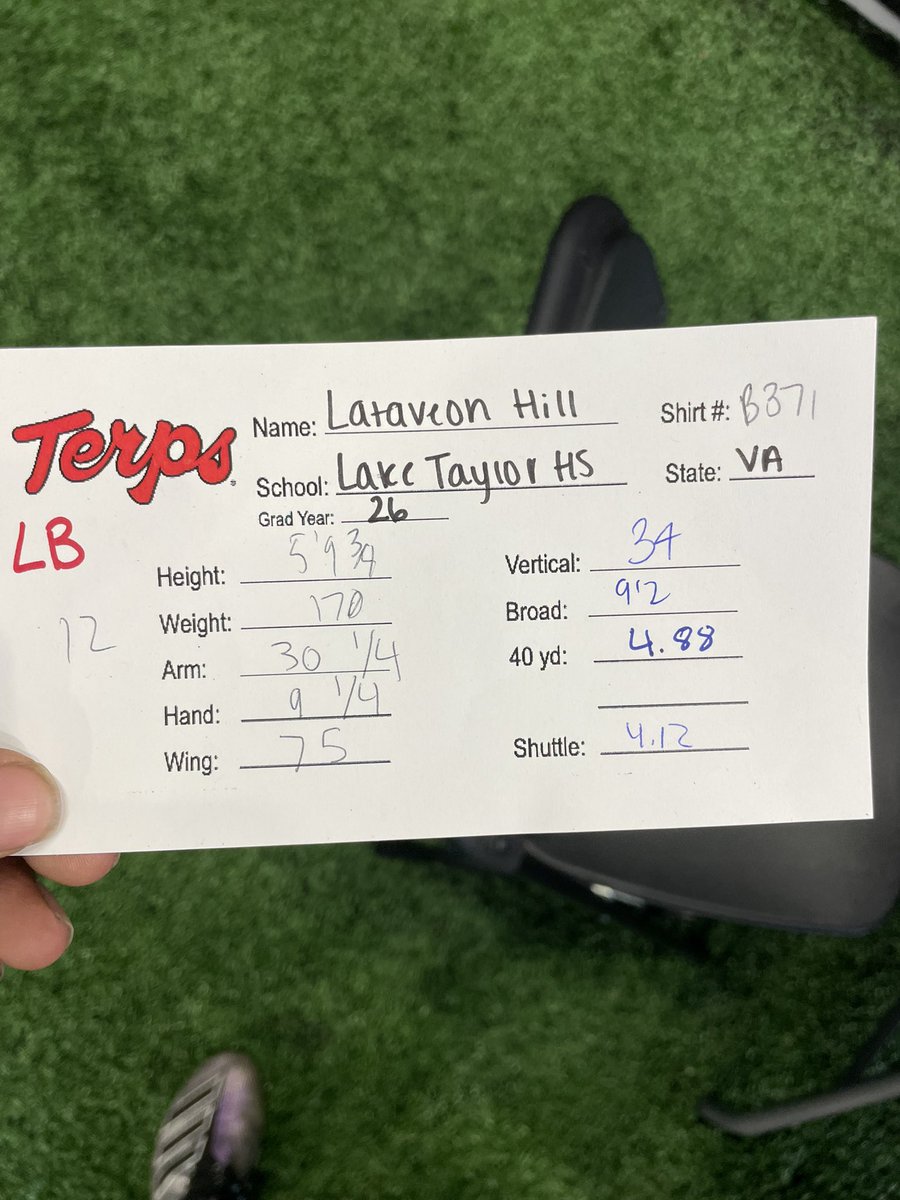 Terps
Name: Lataveon Hill Shirt #: B371
School: Lake Taylor HS State: VA
Grad Year: 26
LB
Height: 5'9 3/4 Vertical: 34
Weight: 170 Broad: 9'2
12
Arm: 30 1/4 40 yd: 4.88
Hand: 9 1/4
Wing: 75 Shuttle: 4.12